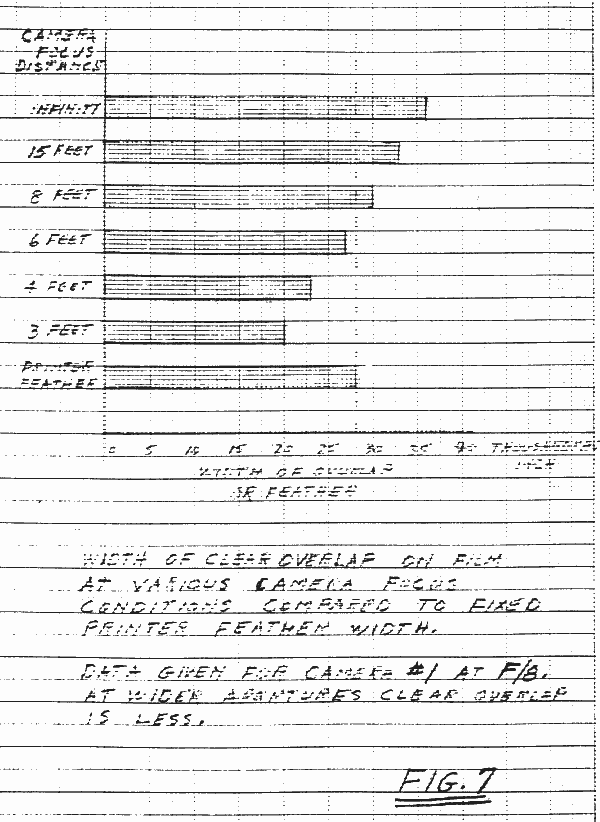 CAMERA
FOCUS
DISTANCE
INFINITY
15 FEET
8 FEET
6 FEET
4 FEET
3 FEET
PRINTER
FEATHER
0 5 10 15 20 25 30 35 40 THOUSANDTHS
INCH
WIDTH OF OVERLAP
OR FEATHER
WIDTH OF CLEAR OVERLAP ON FILM
AT VARIOUS CAMERA FOCUS
CONDITIONS COMPARED TO FIXED
PRINTER FEATHER WIDTH.
DATA GIVEN FOR CAMERA #1 AT F/8.
AT WIDER APERTURES CLEAR OVERLAP
IS LESS.
FIG. 7